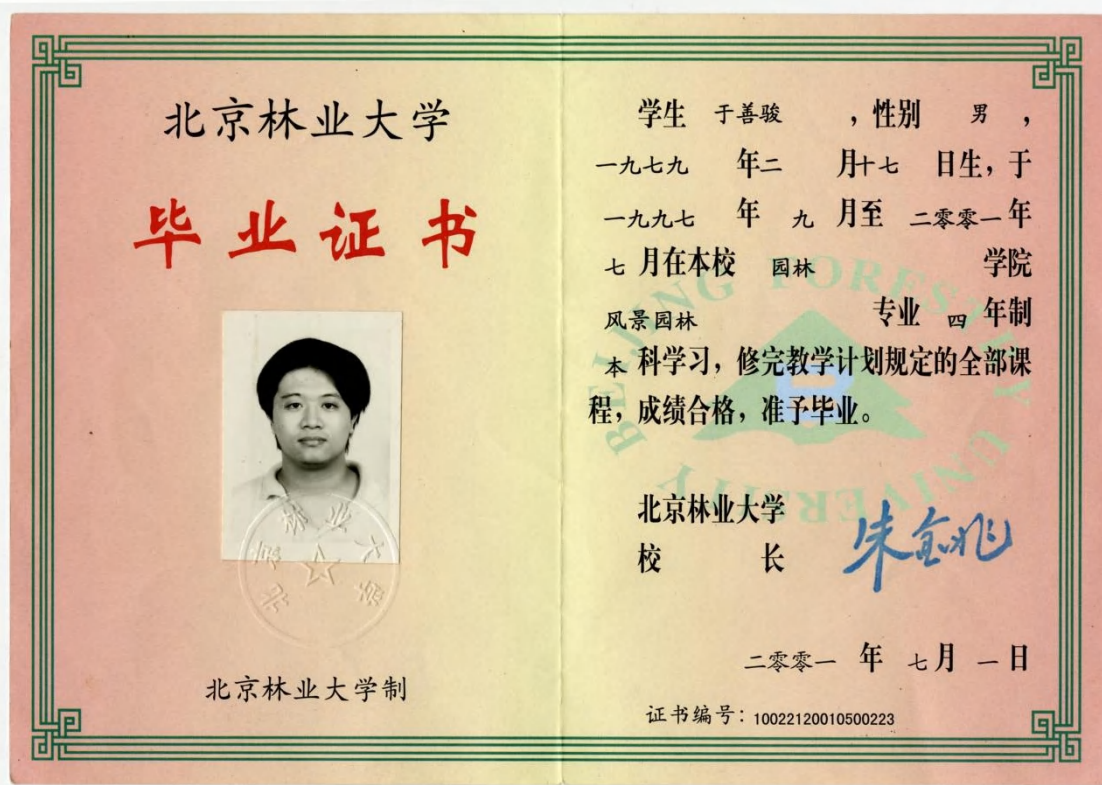 北京林业大学
毕业证书
北京林业大学
北京林业大学制
学生 于善骏 ，性别 男 ，
一九七九 年二 月十七 日生，于
一九九七 年 九 月至 二零零一 年
七 月在本校 园林 学院
风景园林 专业 四 年制
本 科学习，修完教学计划规定的全部课
程，成绩合格，准予毕业。
BEIJING FORESTRY UNIVERSITY
北京林业大学
校 长 朱金兆
二零零一 年 七月 一日
证书编号：10022120010500223